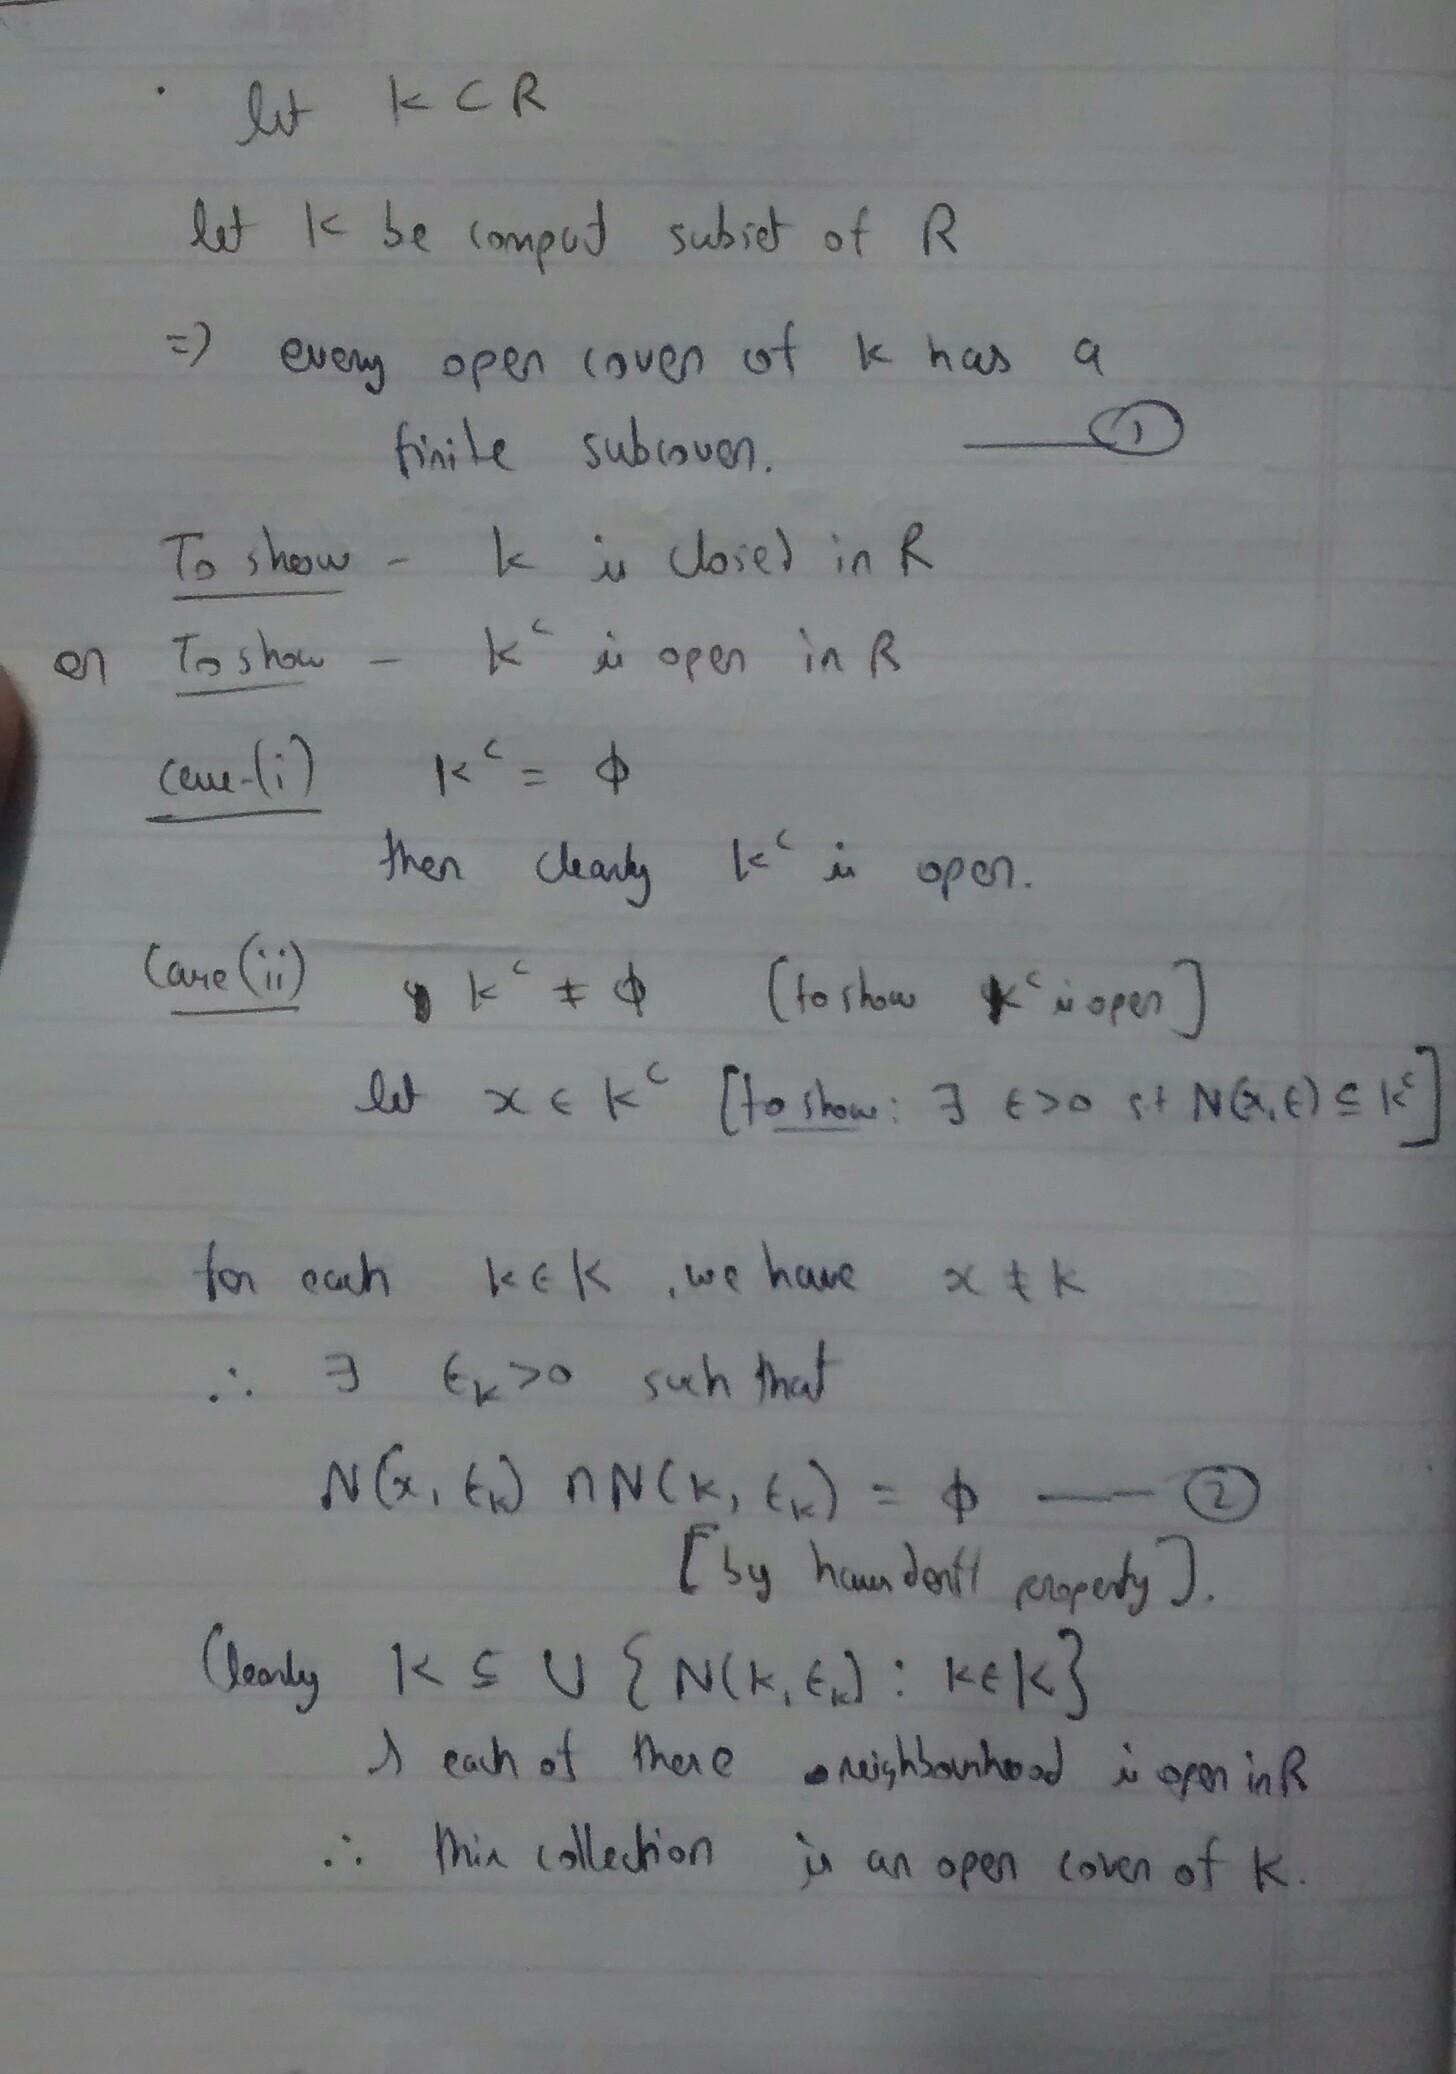 · let K ⊂ R
let K be compact subset of R
=) every open cover of K has a
finite subcover. —— ①
To show - K is closed in R
or To show - Kᶜ is open in R
case-(i) Kᶜ = ϕ
then clearly Kᶜ is open.
Case (ii) Kᶜ ≠ ϕ [to show Kᶜ is open]
let x ∈ Kᶜ [to show: ∃ ε>0 st N(x,ε) ⊆ Kᶜ]
for each k∈K, we have x ≠ k
∴ ∃ εₖ>0 such that
N(x, εₖ) ∩ N(k, εₖ) = ϕ —— ②
[by hausdorff property].
Clearly K ⊆ ∪ {N(k, εₖ) : k∈K}
& each of these neighbourhood is open in R
∴ this collection is an open cover of K.